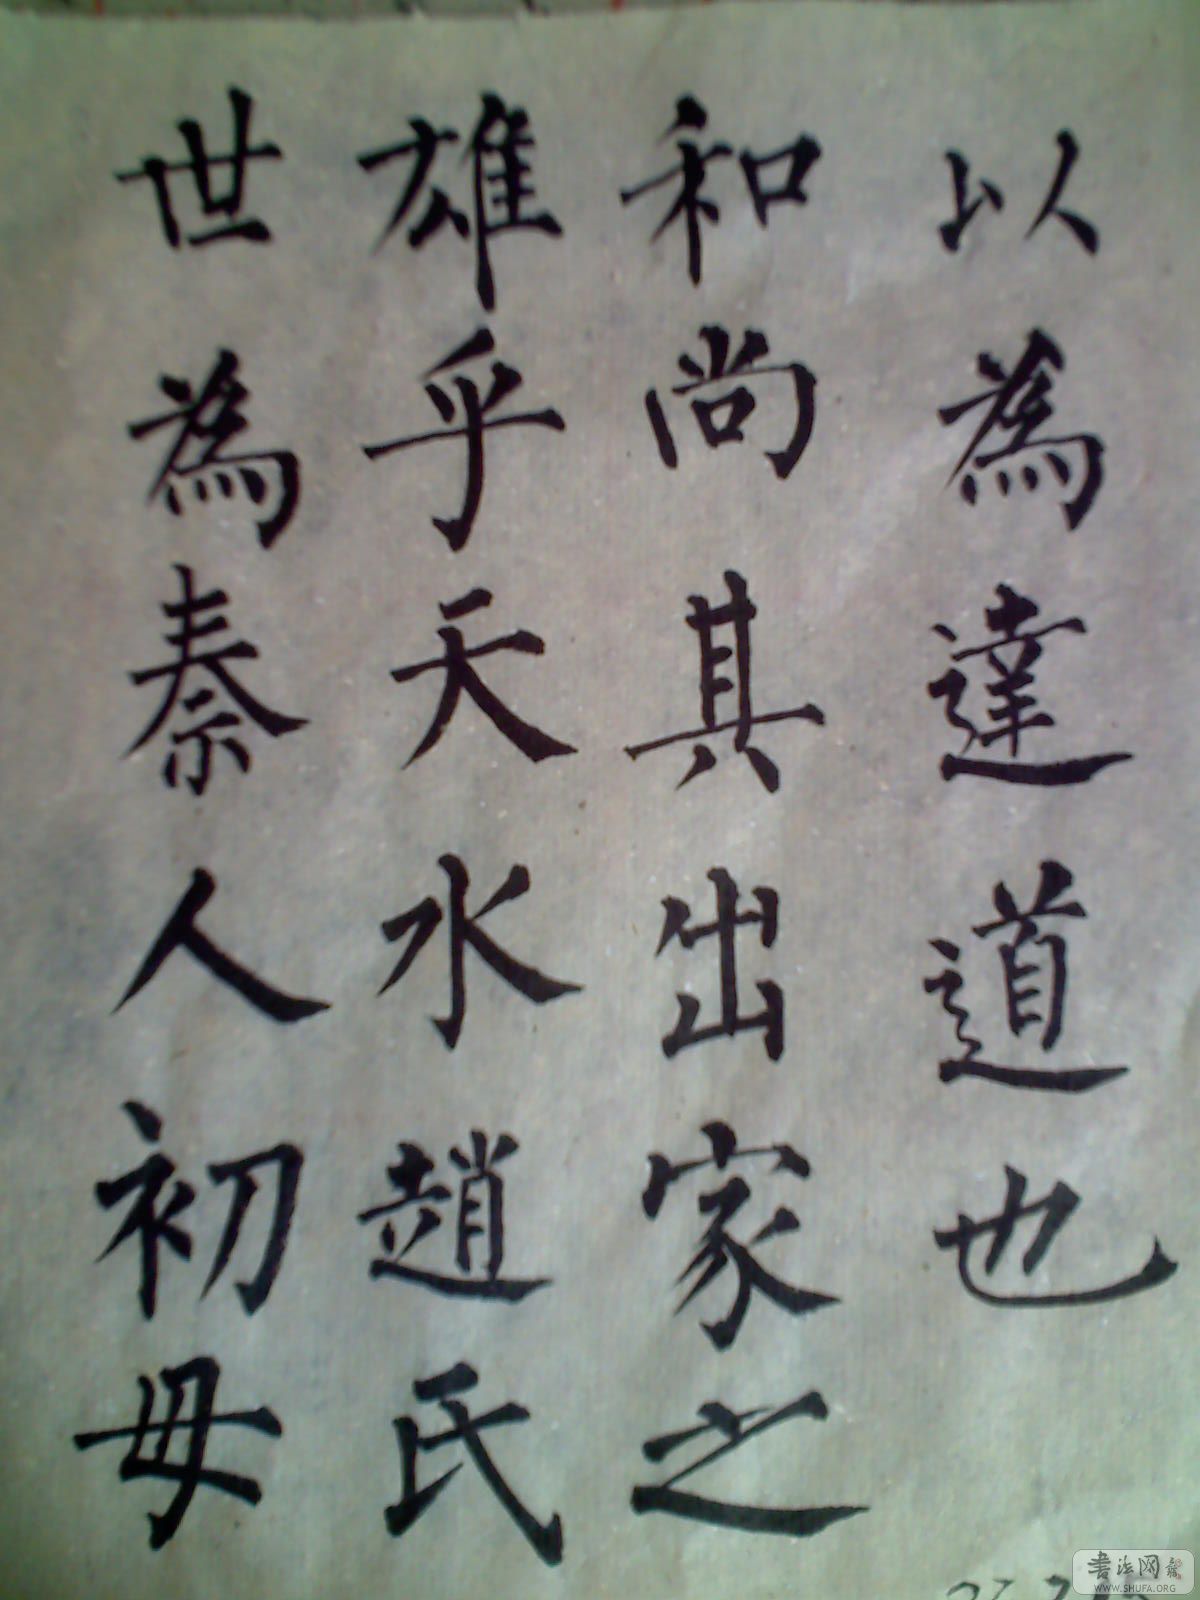 以為達道也
和尚其出家之
雄乎天水趙氏
世為秦人初母
书法网
WWW.SHUFA.ORG